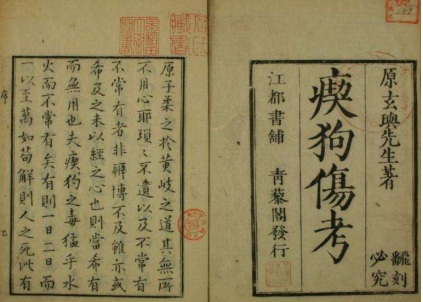 原玄璵先生著
瘈狗傷考
飜刻
必究
江都書舗 青藜閣發行
原子柔之於黄岐之道其無所
不用心耶瑣々不遺以及不常有
不常有者非辯博不及雖亦或
希及之未以經之心也則當希有
而無用也夫瘈狗之毒猛乎水
火而不常有矣有則一日二日而
一以至萬如苟解則人之死有
序